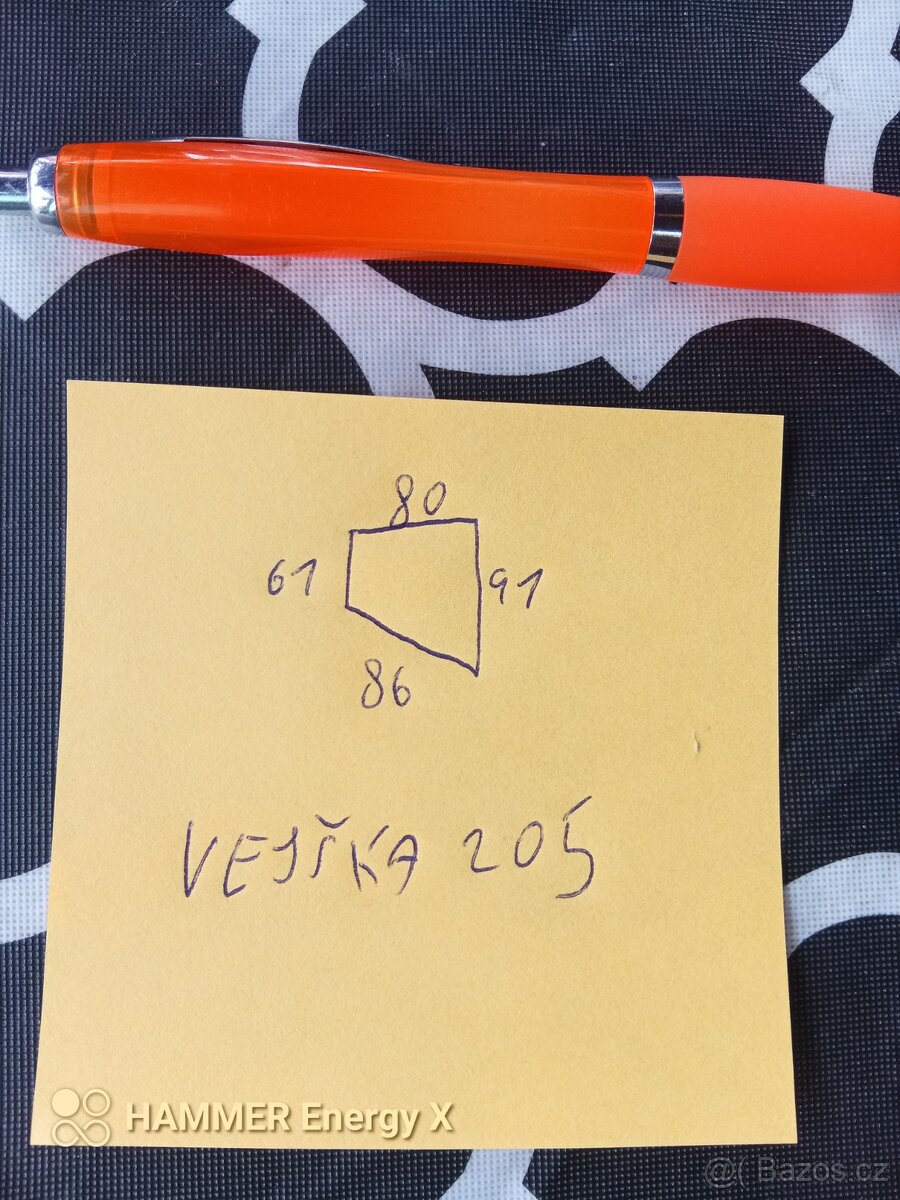 80
61
91
86
VEJŠKA 205
HAMMER Energy X
@( Bazos.cz